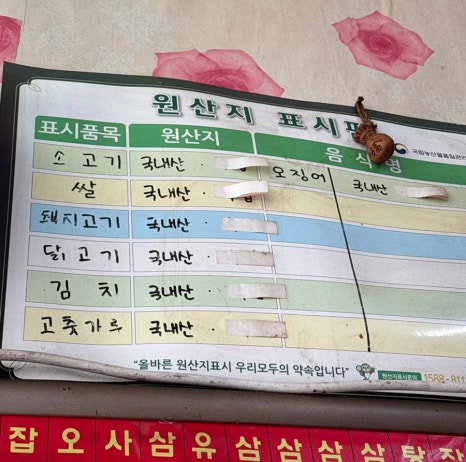 원산지 표시판
표시품목 원산지 음식명 국립농산물품질관리원
소고기 국내산 · 오징어 국내산 ·
쌀 국내산 ·
돼지고기 국내산 ·
닭고기 국내산 ·
김치 국내산 ·
고춧가루 국내산 ·
"올바른 원산지표시 우리모두의 약속입니다" 원산지표시문의 1588-811
잡 오 사 삼 유 삼 삼 삼 삼 탕 잡